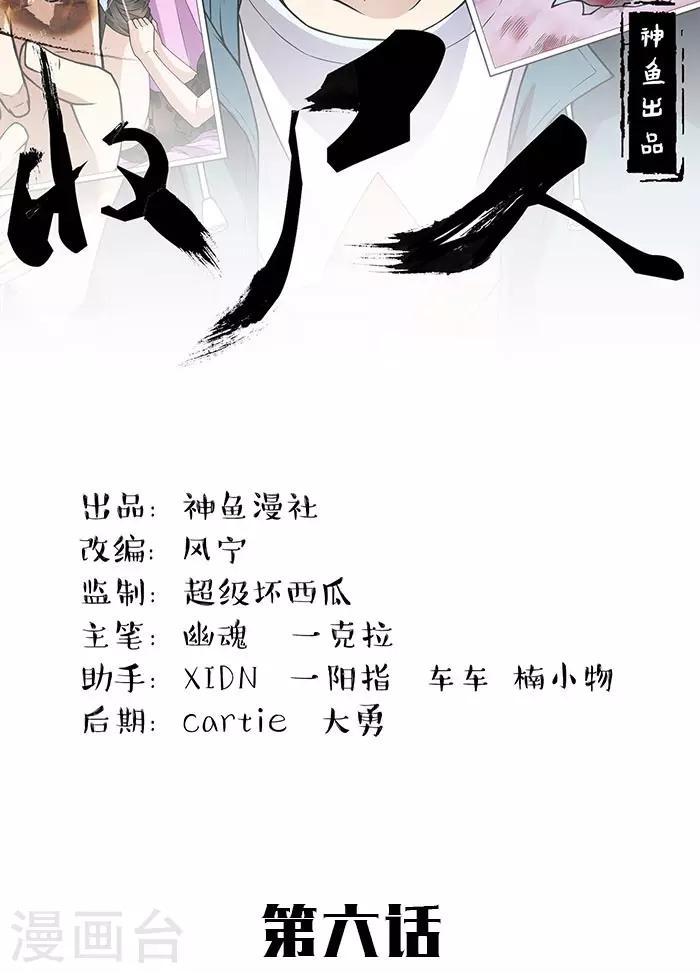 神鱼出品
收尸人
出品：神鱼漫社
改编：风宁
监制：超级坏西瓜
主笔：幽魂 一克拉
助手：XIDN 一阳指 车车 楠小物
后期：cartie 大勇
第六话
漫画台